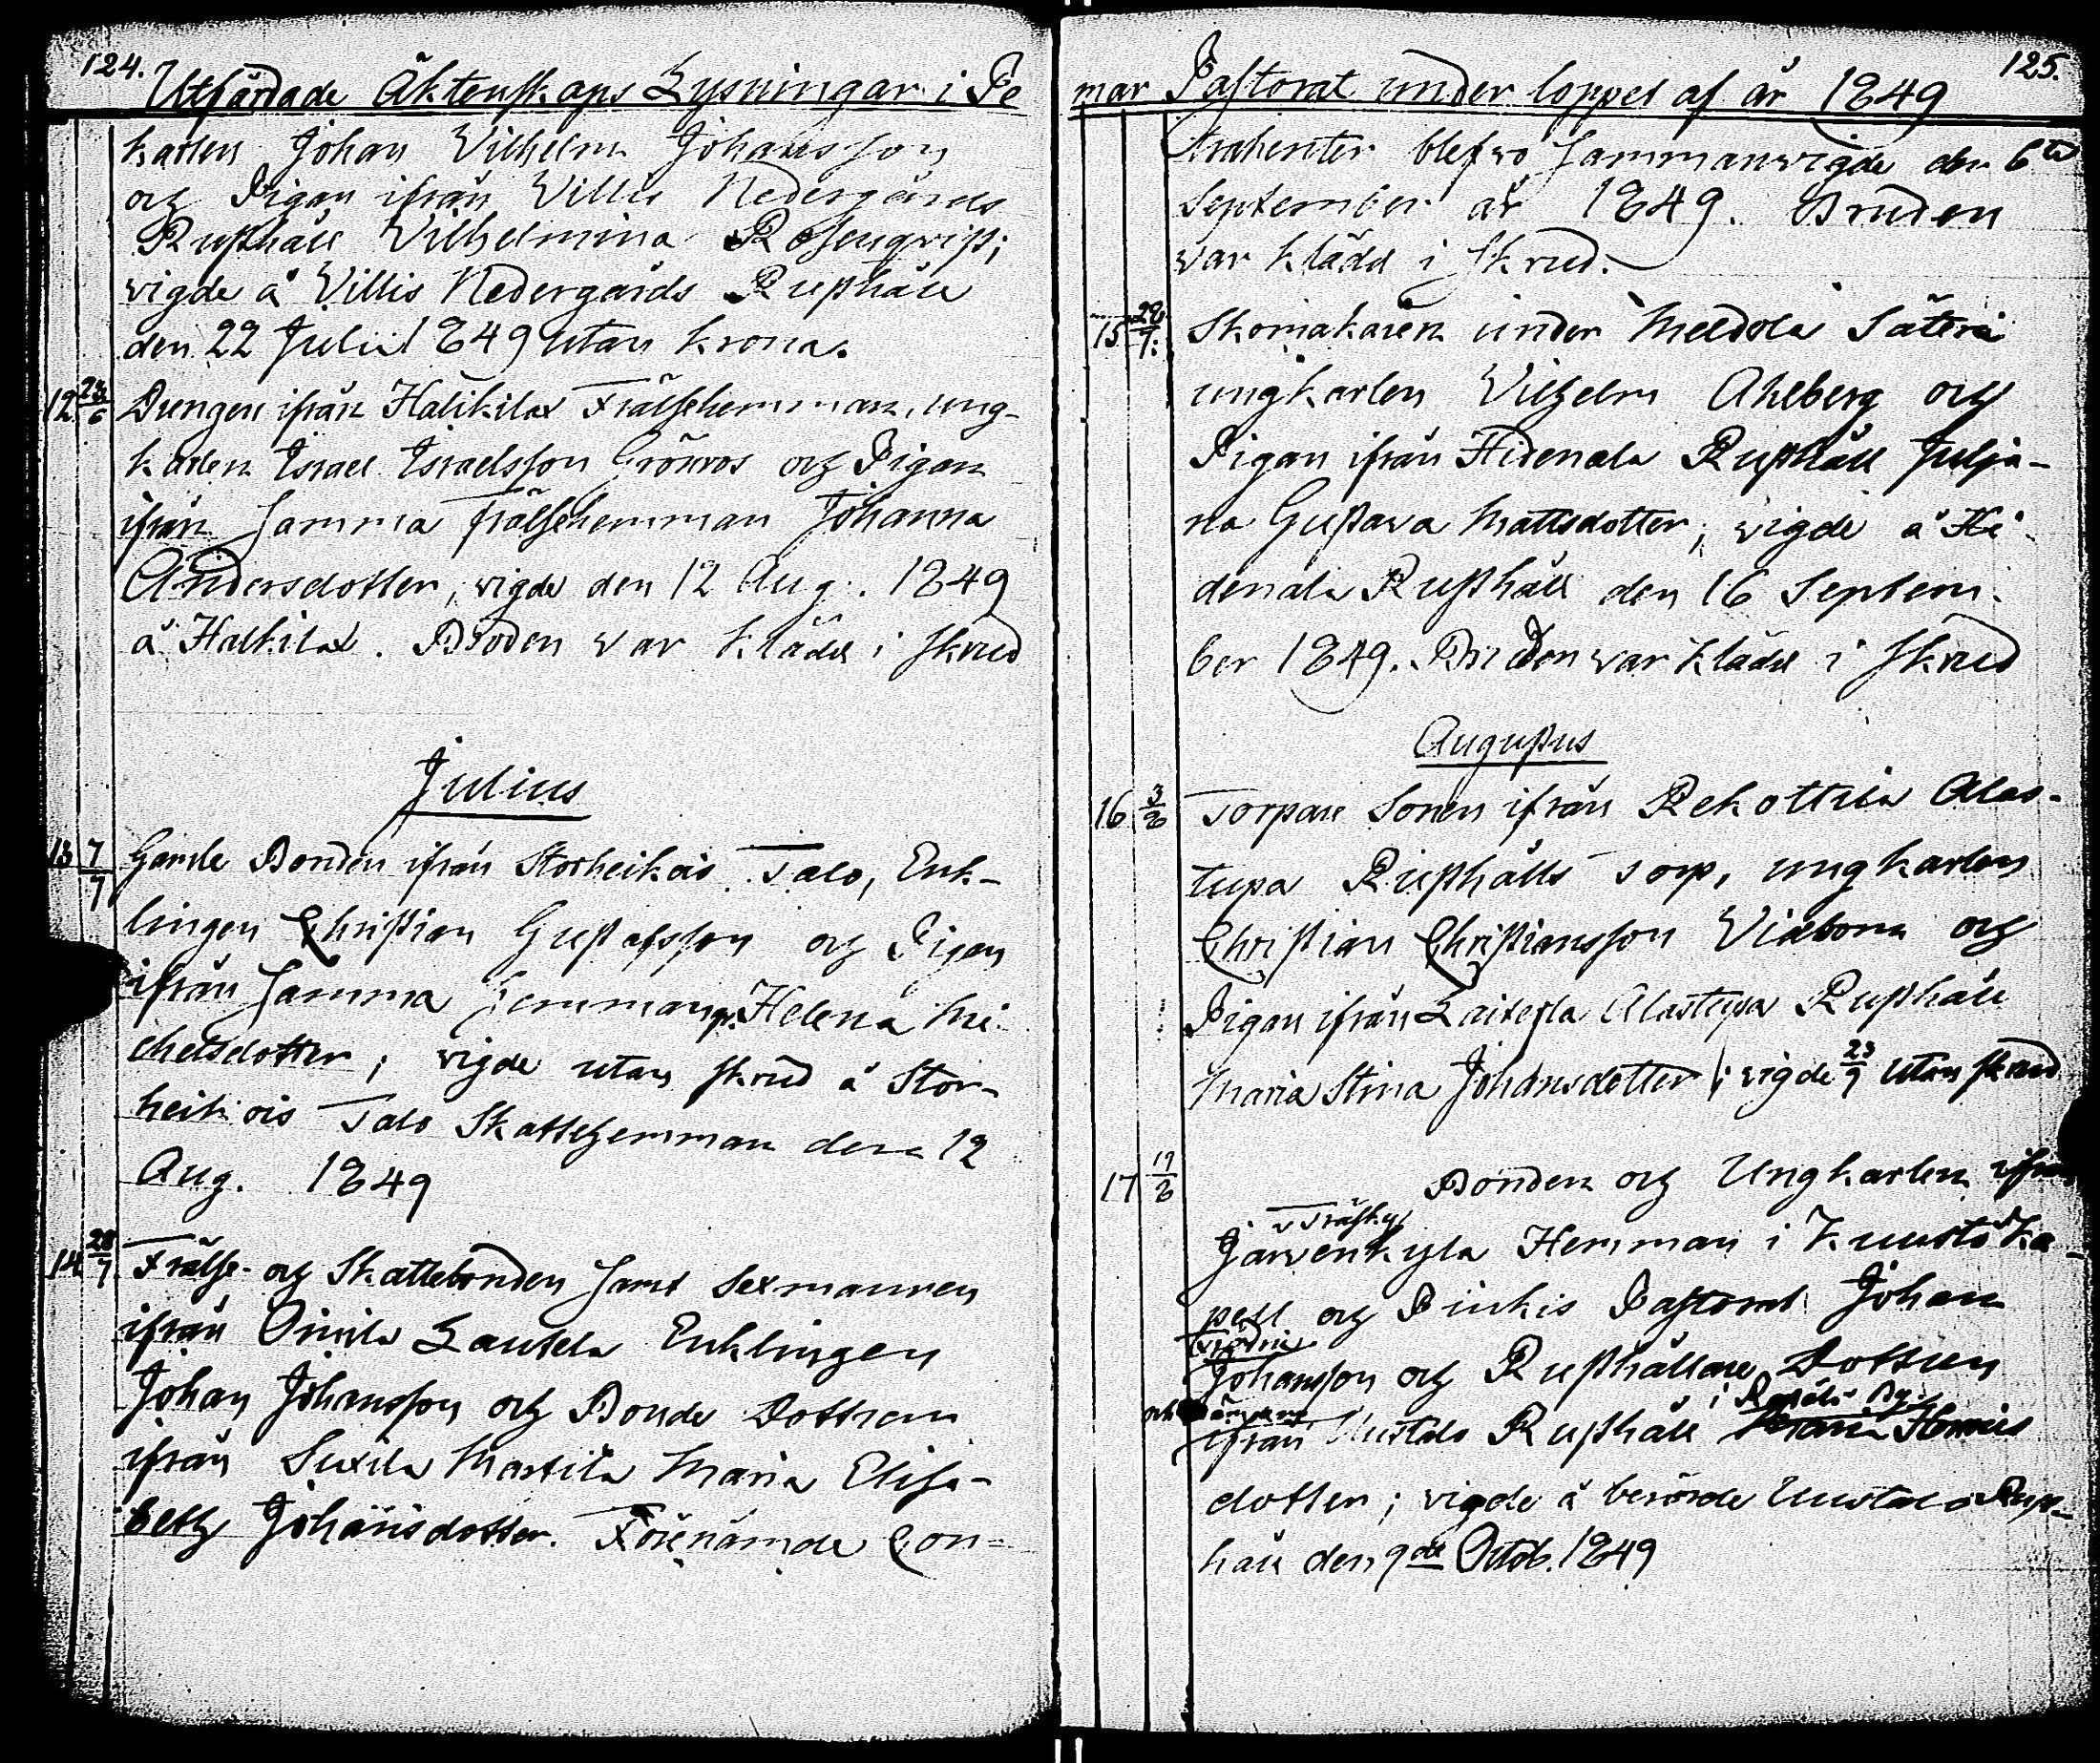 124.
Utfärdade Äktenskaps Lysningar i Pe
karlen Johan Vilhelm Johansson
och Pigan ifrån Villis Nedergårds
Rusthåll Vilhelmina Rosenqvist;
vigde å Villis Nedergårds Rusthåll
den 22 Julii 1849 utan krona.
12 23/6 Drengen ifrån Halikila Frälsehemman, ung-
karlen Israel Israelsson Grönros och Pigan
ifrån samma frälsehemman Johanna
Andersdotter, vigde den 12 Aug. 1849
å Halkila. Bruden var klädd i skrud
Julius
13 7/7 Gamle Bonden ifrån Storheikois Talo, Enk-
lingen Christian Gustafsson och Pigan
ifrån samma hemman Helena Mi-
chelsdotter; vigde utan skrud å Stor-
heikois Talo Skattehemman den 12
Aug. 1849
14 28/7 Frälse- och Skattebonden samt Sexmannen
ifrån Oinila Lautela Enklingen
Johan Johansson och Bonde Dottren
ifrån Suxila Martila Maria Elisa-
beth Johansdotter. Förenämde Con-
125.
mar Pastorat under loppet af år 1849
trahenter blefvo sammanvigde den 6te
September år 1849. Bruden
var klädd i skrud.
15 28/7. Skomakaren under Meldola Säteri
ungkarlen Vilhelm Ahlberg och
Pigan ifrån Hidenala Rusthåll Julja-
na Gustava Mattsdotter; vigde å Hi-
denala Rusthåll den 16 Septem-
ber 1849. Bruden var klädd i skrud
Augustus
16 3/8 Torpare Sonen ifrån Rekottila Alas-
tupa Rusthålls torp, ungkarlen
Christian Christiansson Vidbom och
Pigan ifrån Alastupa Rusthåll
Maria Stina Johansdotter; vigde 23/9 utan skrud
17 17/8 Bonden och Ungkarlen ifrån
Träsky
Järvenkyla Hemman i Kuustö Ka-
pell och Piikis Pastorat Johan
Johansson och Rusthållare Dottren
i By
ifrån Uustalo Rusthåll Maria
dotter; vigde å berörde Uustalo Rust-
håll den 9de Octob. 1849